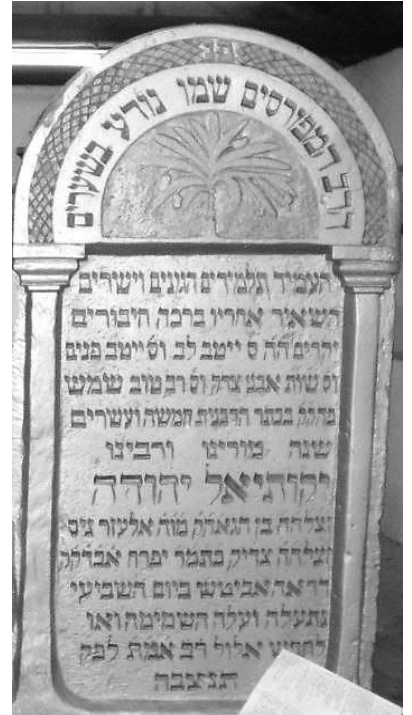 הרב המפורסים שמו נודע בשערים
והעמיד תלמידים הגונים וישרים
השאיר אחריו ברכה חיבורים
יקרים ה״ה ס׳ ייטב לב וס׳ ייטב פנים
וס׳ שו״ת אבני צדק וס׳ רב טוב שמש
בהקק בכתר הרבנות חמשה ועשרים
שנה מורינו ורבינו
יקותיאל יהודה
זצלהה בן הגאהק מוה אלעזר ניס
זצלהה צדיק כתמר יפרח אבדקק
דראהאביטש ביום השביעי
נתעלה ועלה השמימה ואו
לחדש אלול רב אמת לפק
תנצבה